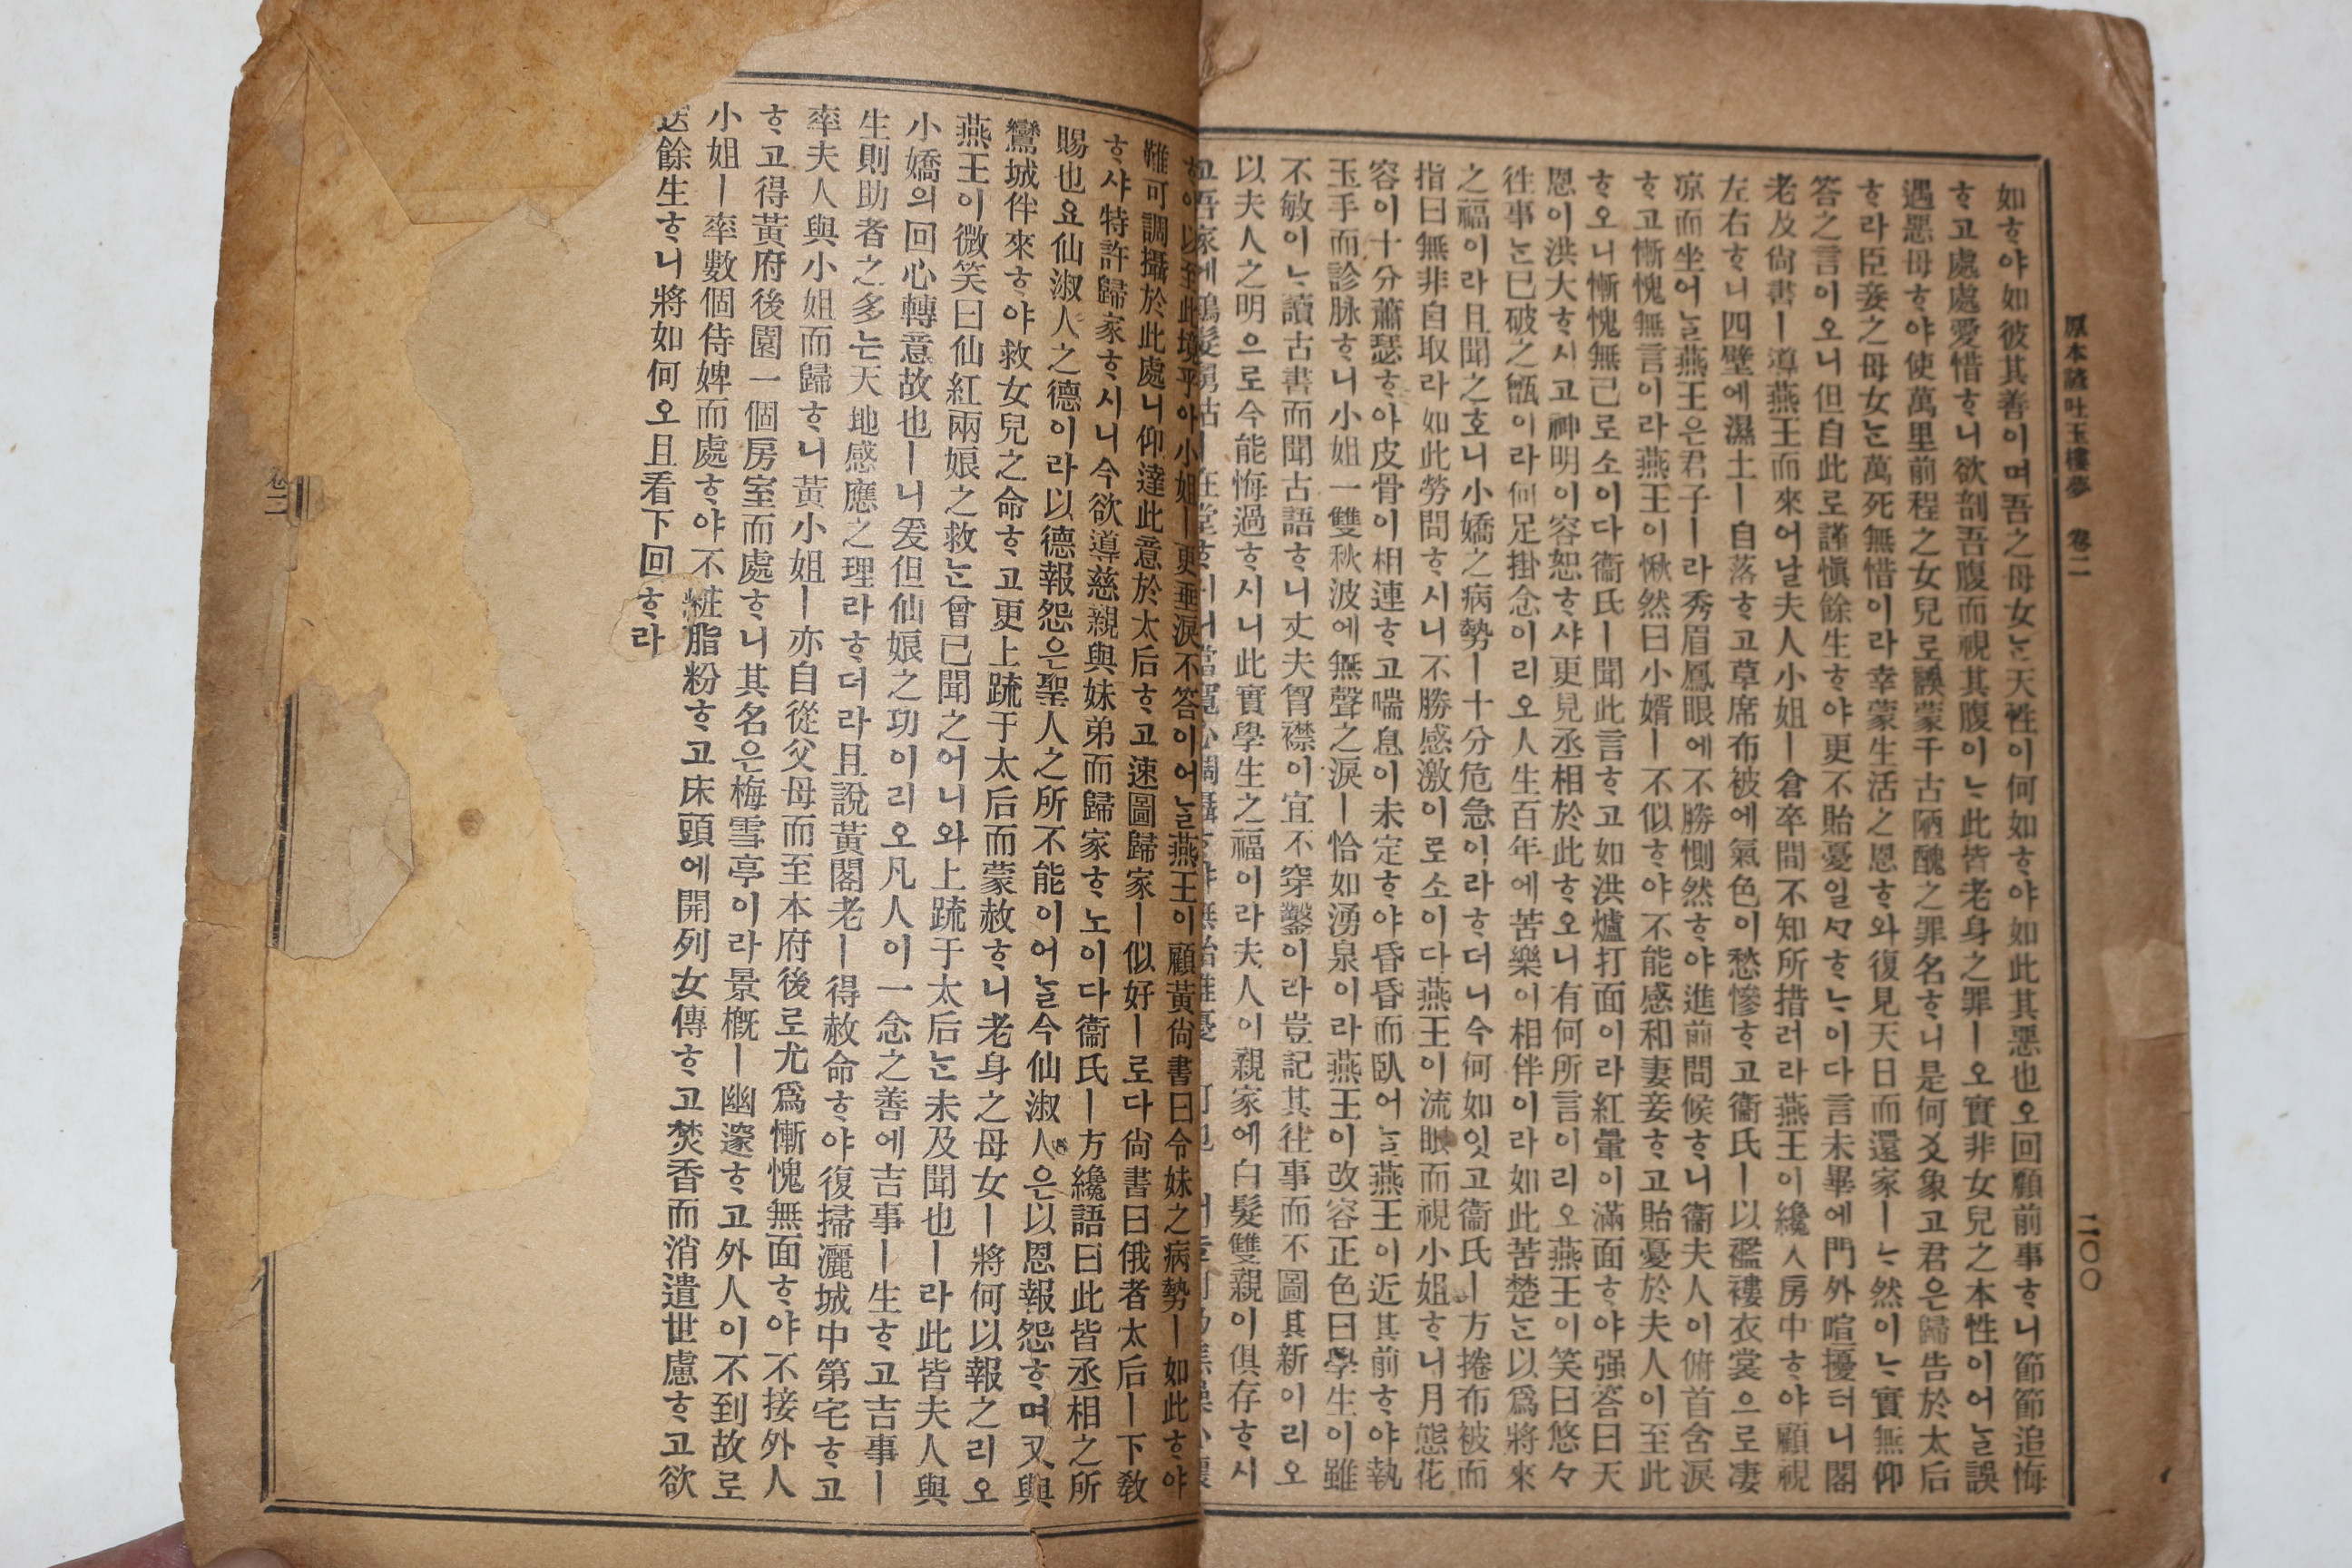 原本諺吐玉樓夢 卷二 二〇〇
如ᄒᆞ야如彼其善이며吾之母女ᄂᆞᆫ天性이何如ᄒᆞ야如此其惡也오回顧前事ᄒᆞ니節節追悔
ᄒᆞ고處處愛惜ᄒᆞ니欲剖吾腹而視其腹이ᄂᆞ此皆老身之罪ㅣ오實非女兒之本性이어ᄂᆞᆯ誤
遇惡母ᄒᆞ야使萬里前程之女兒로誤蒙千古陋醜之罪名ᄒᆞ니是何爻象고君은歸告於太后
ᄒᆞ라臣妾之母女ᄂᆞᆫ萬死無惜이라幸蒙生活之恩ᄒᆞ와復見天日而還家ㅣᄂᆞ然이ᄂᆞ實無仰
答之言이오니但自此로謹愼餘生ᄒᆞ야更不貽憂일ᄭᆞᄒᆞᄂᆞ이다言未畢에門外喧擾터니閣
老及尙書ㅣ導燕王而來어날夫人小姐ㅣ倉卒間不知所措러라燕王이纔入房中ᄒᆞ야顧視
左右ᄒᆞ니四壁에濕土ㅣ自落ᄒᆞ고草席布被에氣色이愁慘ᄒᆞ고衞氏ㅣ以襤褸衣裳으로凄
凉而坐어ᄂᆞᆯ燕王은君子ㅣ라秀眉鳳眼에不勝惻然ᄒᆞ야進前問候ᄒᆞ니衞夫人이俯首含淚
ᄒᆞ고慚愧無言이라燕王이愀然曰小婿ㅣ不似ᄒᆞ야不能感和妻妾ᄒᆞ고貽憂於夫人이至此
ᄒᆞ오니慚愧無已로소이다衞氏ㅣ聞此言ᄒᆞ고如洪爐打面이라紅暈이滿面ᄒᆞ야强答曰天
恩이洪大ᄒᆞ시고神明이容恕ᄒᆞ샤更見丞相於此ᄒᆞ오니有何所言이리오燕王이笑曰悠々
往事ᄂᆞᆫ已破之甑이라何足掛念이리오人生百年에苦樂이相伴이라如此苦楚ᄂᆞᆫ以爲將來
之福이라且聞之호니小嬌之病勢ㅣ十分危急이라ᄒᆞ더니今何如잇고衞氏ㅣ方捲布被而
指曰無非自取라如此勞問ᄒᆞ시니不勝感激이로소이다燕王이流眼而視小姐ᄒᆞ니月態花
容이十分蕭瑟ᄒᆞ야皮骨이相連ᄒᆞ고喘息이未定ᄒᆞ야昏昏而臥어ᄂᆞᆯ燕王이近其前ᄒᆞ야執
玉手而診脉ᄒᆞ니小姐一雙秋波에無聲之淚ㅣ恰如湧泉이라燕王이改容正色曰學生이雖
不敏이ᄂᆞ讀古書而聞古語ᄒᆞ니丈夫胷襟이宜不穿鑿이라豈記其往事而不圖其新이리오
以夫人之明으로今能悔過ᄒᆞ시니此實學生之福이라夫人이親家에白髮雙親이俱存ᄒᆞ시
고吾家에鶴髮舅姑ㅣ在堂
以至此境乎아小姐ㅣ更垂淚不答이어ᄂᆞᆯ燕王이顧黃尙書曰令妹之病勢ㅣ如此ᄒᆞ야
難可調攝於此處니仰達此意於太后ᄒᆞ고速圖歸家ㅣ似好ㅣ로다尙書曰俄者太后ㅣ下敎
ᄒᆞ샤特許歸家ᄒᆞ시니今欲導慈親與妹弟而歸家ᄒᆞ노이다衞氏ㅣ方纔語曰此皆丞相之所
賜也요仙淑人之德이라以德報怨은聖人之所不能이어ᄂᆞᆯ今仙淑人은以恩報怨ᄒᆞ며又與
鸞城伴來ᄒᆞ야救女兒之命ᄒᆞ고更上䟽于太后而蒙赦ᄒᆞ니老身之母女ㅣ將何以報之리오
燕王이微笑曰仙紅兩娘之救ᄂᆞᆫ曾已聞之어니와上䟽于太后ᄂᆞᆫ未及聞也ㅣ라此皆夫人與
小嬌의回心轉意故也ㅣ니爰但仙娘之功이리오凡人이一念之善에吉事ㅣ生ᄒᆞ고吉事ㅣ
生則助者之多ᄂᆞᆫ天地感應之理라ᄒᆞ더라且說黃閣老ㅣ得赦命ᄒᆞ야復掃灑城中第宅ᄒᆞ고
率夫人與小姐而歸ᄒᆞ니黃小姐ㅣ亦自從父母而至本府後로尤爲慚愧無面ᄒᆞ야不接外人
ᄒᆞ고得黃府後園一個房室而處ᄒᆞ니其名은梅雪亭이라景槪ㅣ幽邃ᄒᆞ고外人이不到故로
小姐ㅣ率數個侍婢而處ᄒᆞ야不粧脂粉ᄒᆞ고床頭에開列女傳ᄒᆞ고焚香而消遣世慮ᄒᆞ고欲
送餘生ᄒᆞ니將如何오且看下回ᄒᆞ라
卷二